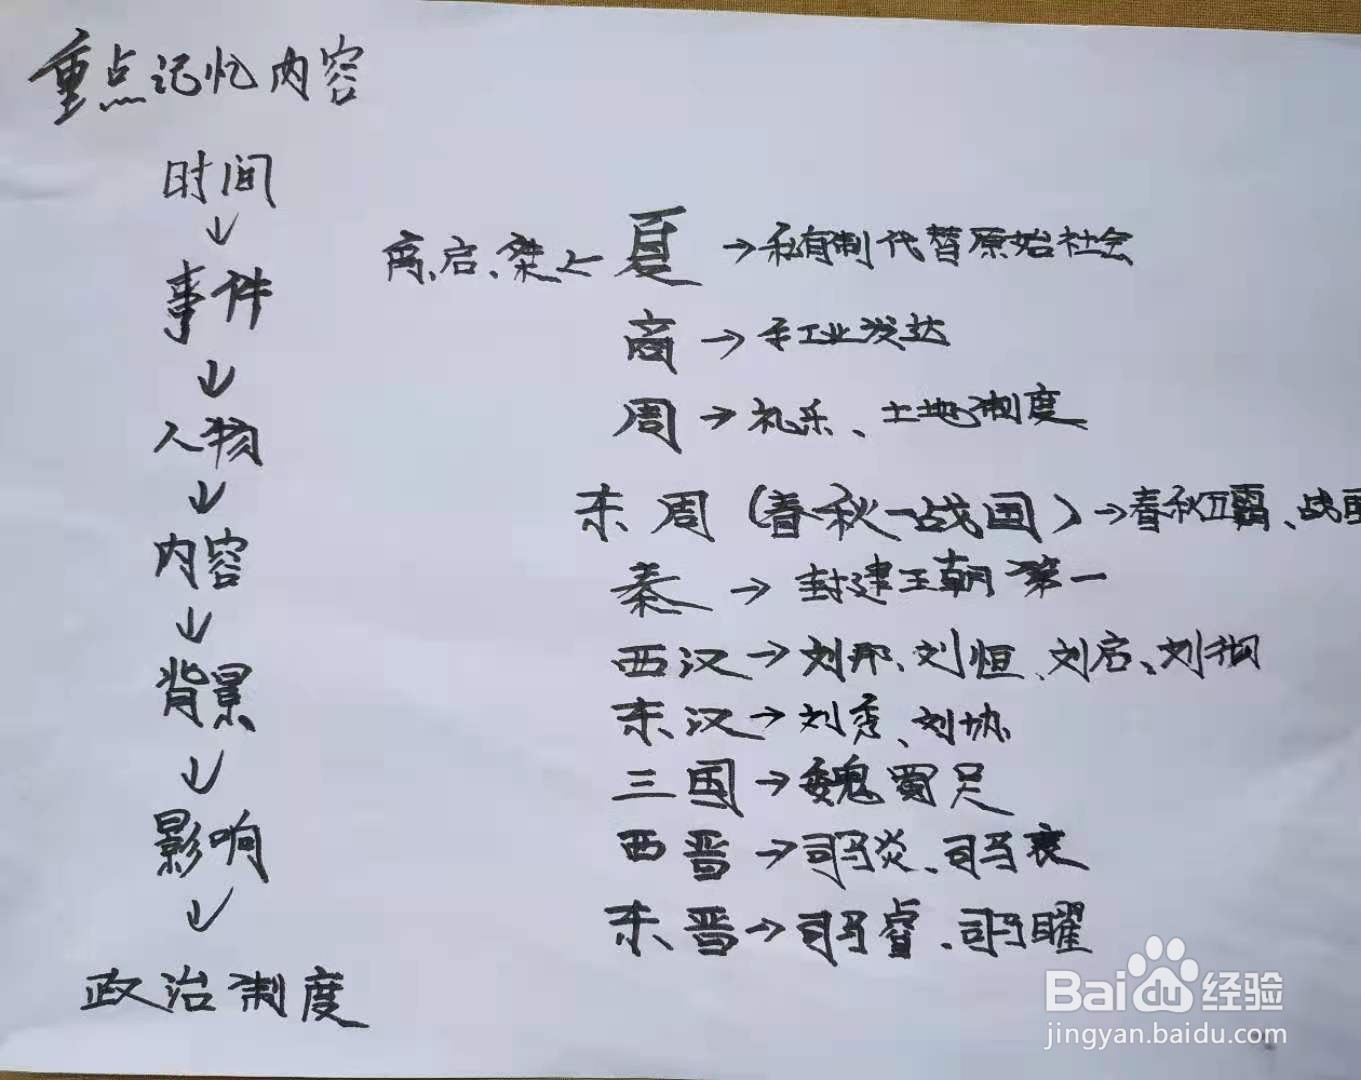 重点记忆内容
时间
↓
事件
↓
人物
↓
内容
↓
背景
↓
影响
↓
政治制度
禹、启、桀←夏→私有制代替原始社会
商→手工业发达
周→礼乐、土地制度
东周(春秋—战国)→春秋五霸、战
秦→封建王朝第一
西汉→刘邦、刘恒、刘启、刘彻
东汉→刘秀、刘协
三国→魏蜀吴
西晋→司马炎、司马衷
东晋→司马睿、司马曜
Bai du 经验
jingyan.baidu.com